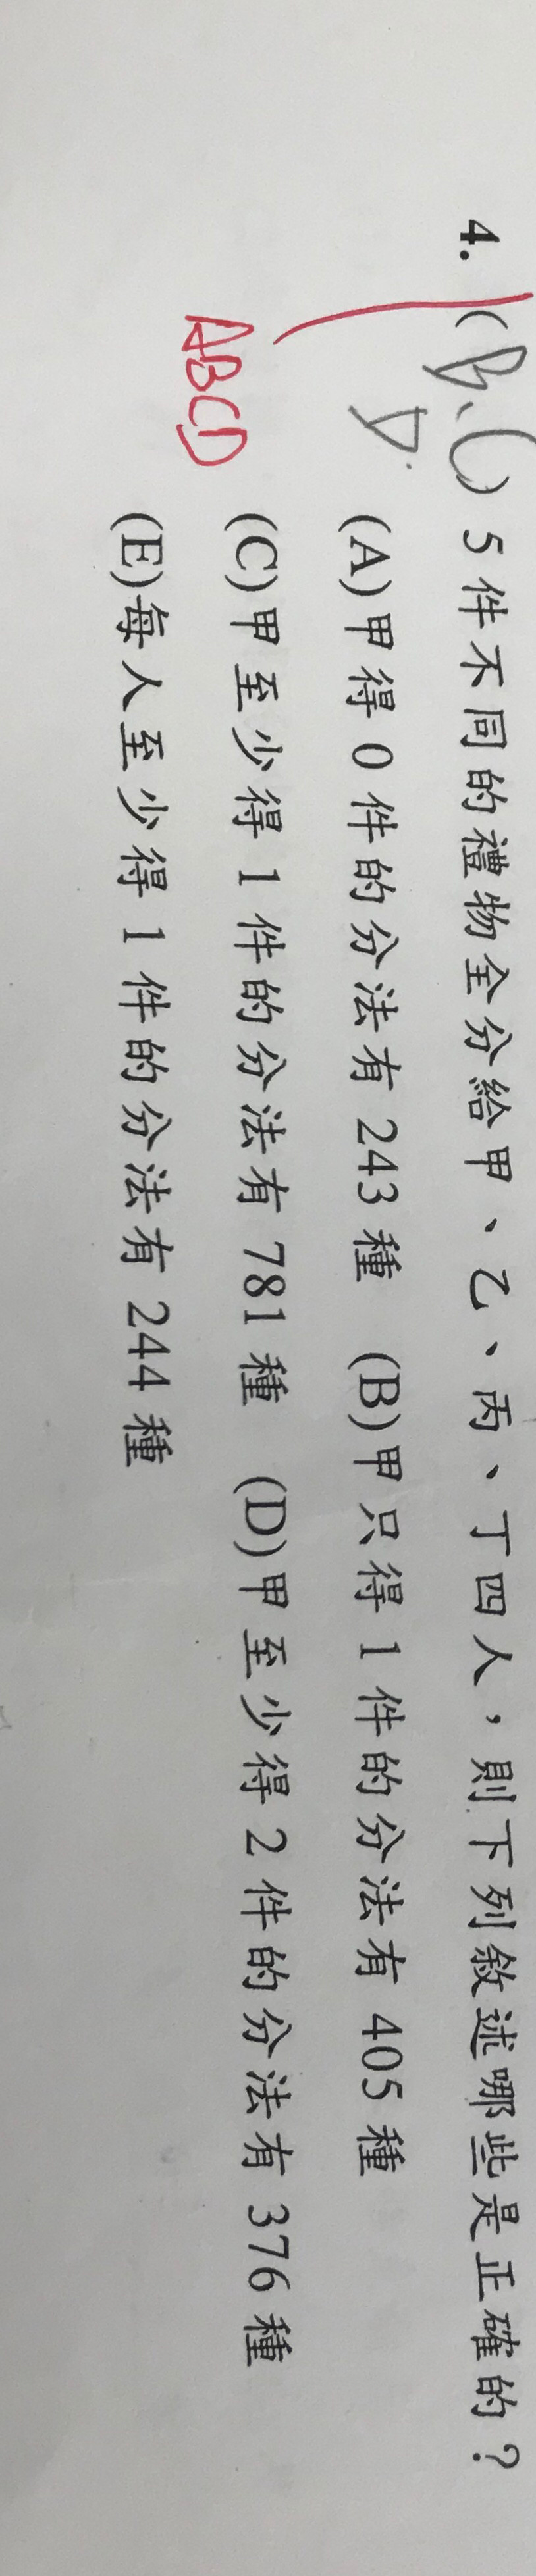 4. (B、C) 5件不同的禮物全分給甲、乙、丙、丁四人，則下列敘述哪些是正確的？
D
(A)甲得0件的分法有243種 (B)甲只得1件的分法有405種
(C)甲至少得1件的分法有781種 (D)甲至少得2件的分法有376種
ABCD
(E)每人至少得1件的分法有244種